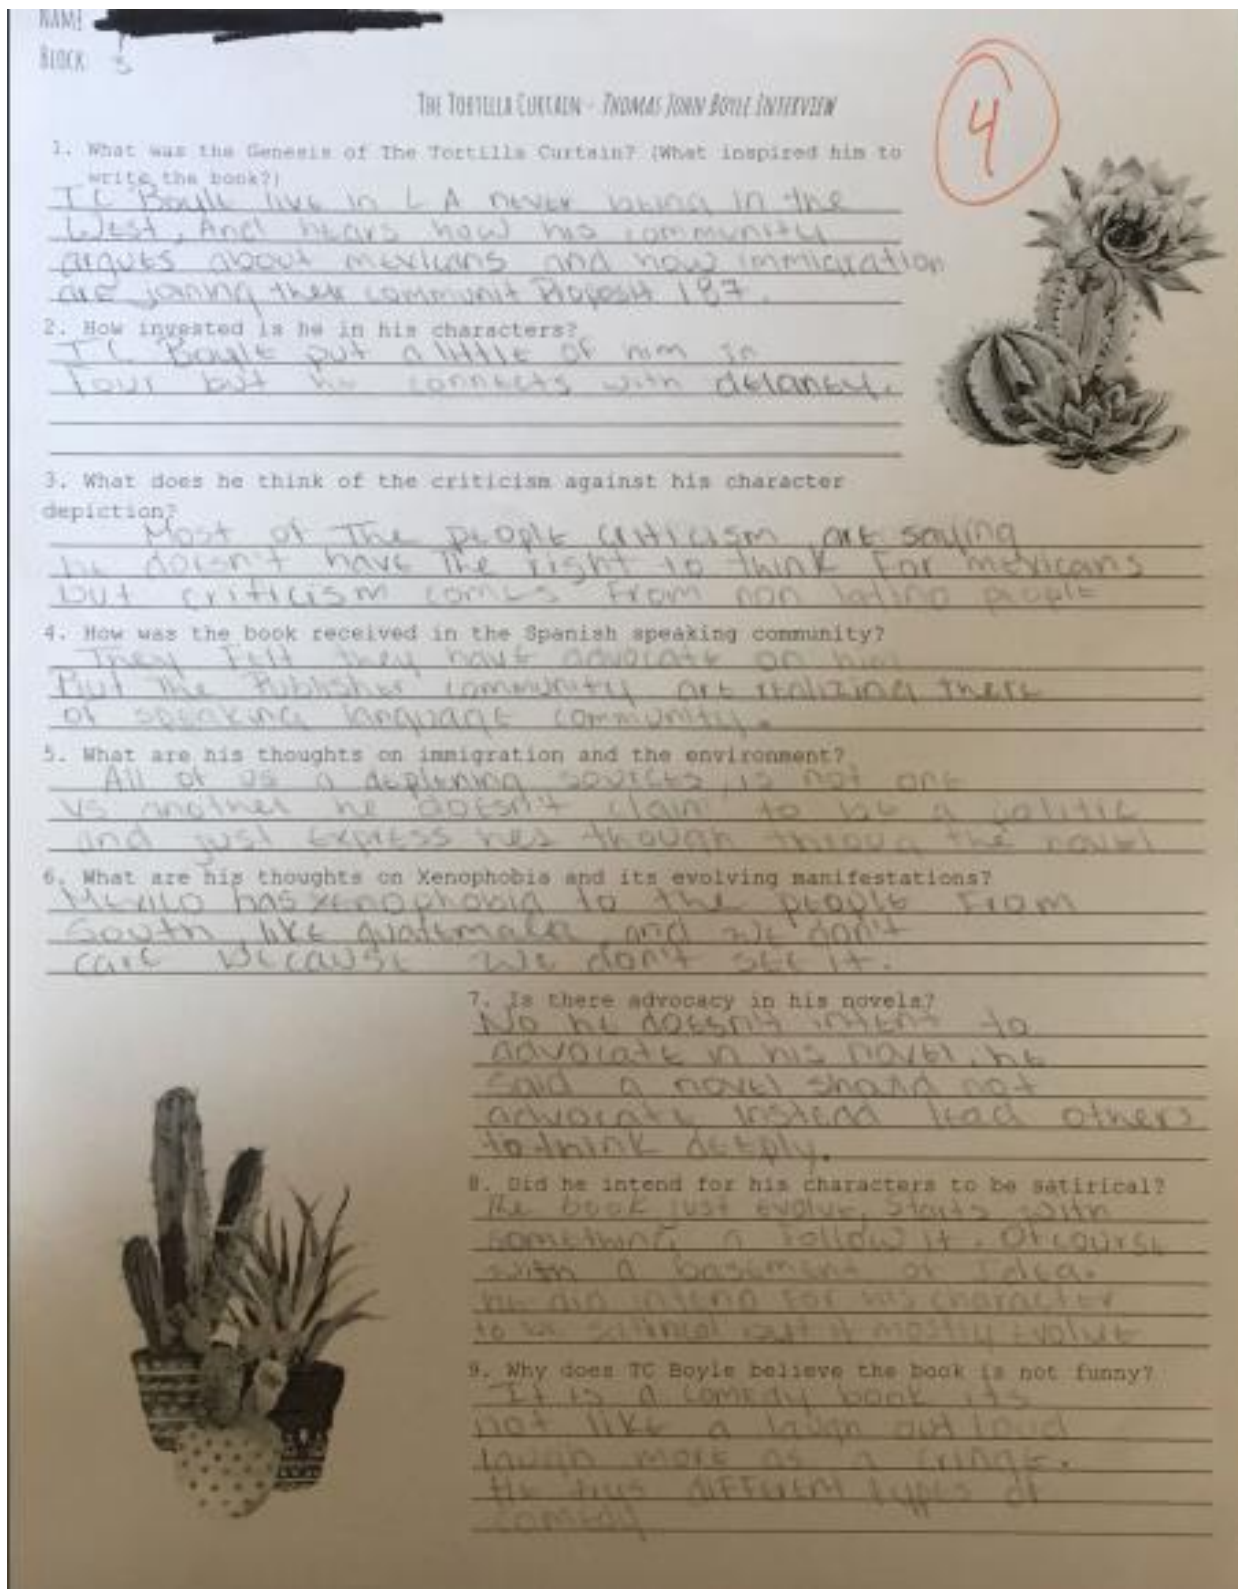 NAME
BLOCK 3
THE TORTILLA CURTAIN - THOMAS JOHN BOYLE INTERVIEW
4
1. What was the Genesis of The Tortilla Curtain? (What inspired him to
write the book?)
TC Boyle live in LA never being in the
West, And hears how his community
argues about mexicans and how immigration
are joining their communit Proposit 187.
2. How invested is he in his characters?
TC Boyle put a little of him in
Four but he connects with delaney.
3. What does he think of the criticism against his character
depiction?
Most of The people criticism are saying
he doesn't have The right to think For mexicans
but criticism comes From non latino people
4. How was the book received in the Spanish speaking community?
They Felt they have advocate on him
But The Publisher community are realizing there
of speaking language community.
5. What are his thoughts on immigration and the environment?
All of us a deplening sources, is not one
vs another he doesn't claim to be a politic
and just Express hes though throug the novel
6. What are his thoughts on Xenophobia and its evolving manifestations?
Mexico has xenophobia to the people From
South, like guatemala, and we don't
care because we don't see it.
7. Is there advocacy in his novels?
No he doesn't intent to
advocate in his novel, he
said a novel should not
advocate instead lead others
to think deeply.
8. Did he intend for his characters to be satirical?
The book just evolve, starts with
something n Follow it. Of course
with a basement or Idea.
he did intend For his character
to be satirical but it mostly evolve
9. Why does TC Boyle believe the book is not funny?
It is a comedy book its
not like a laugh out loud
laugh more as a cringe.
He has different types of
comedy